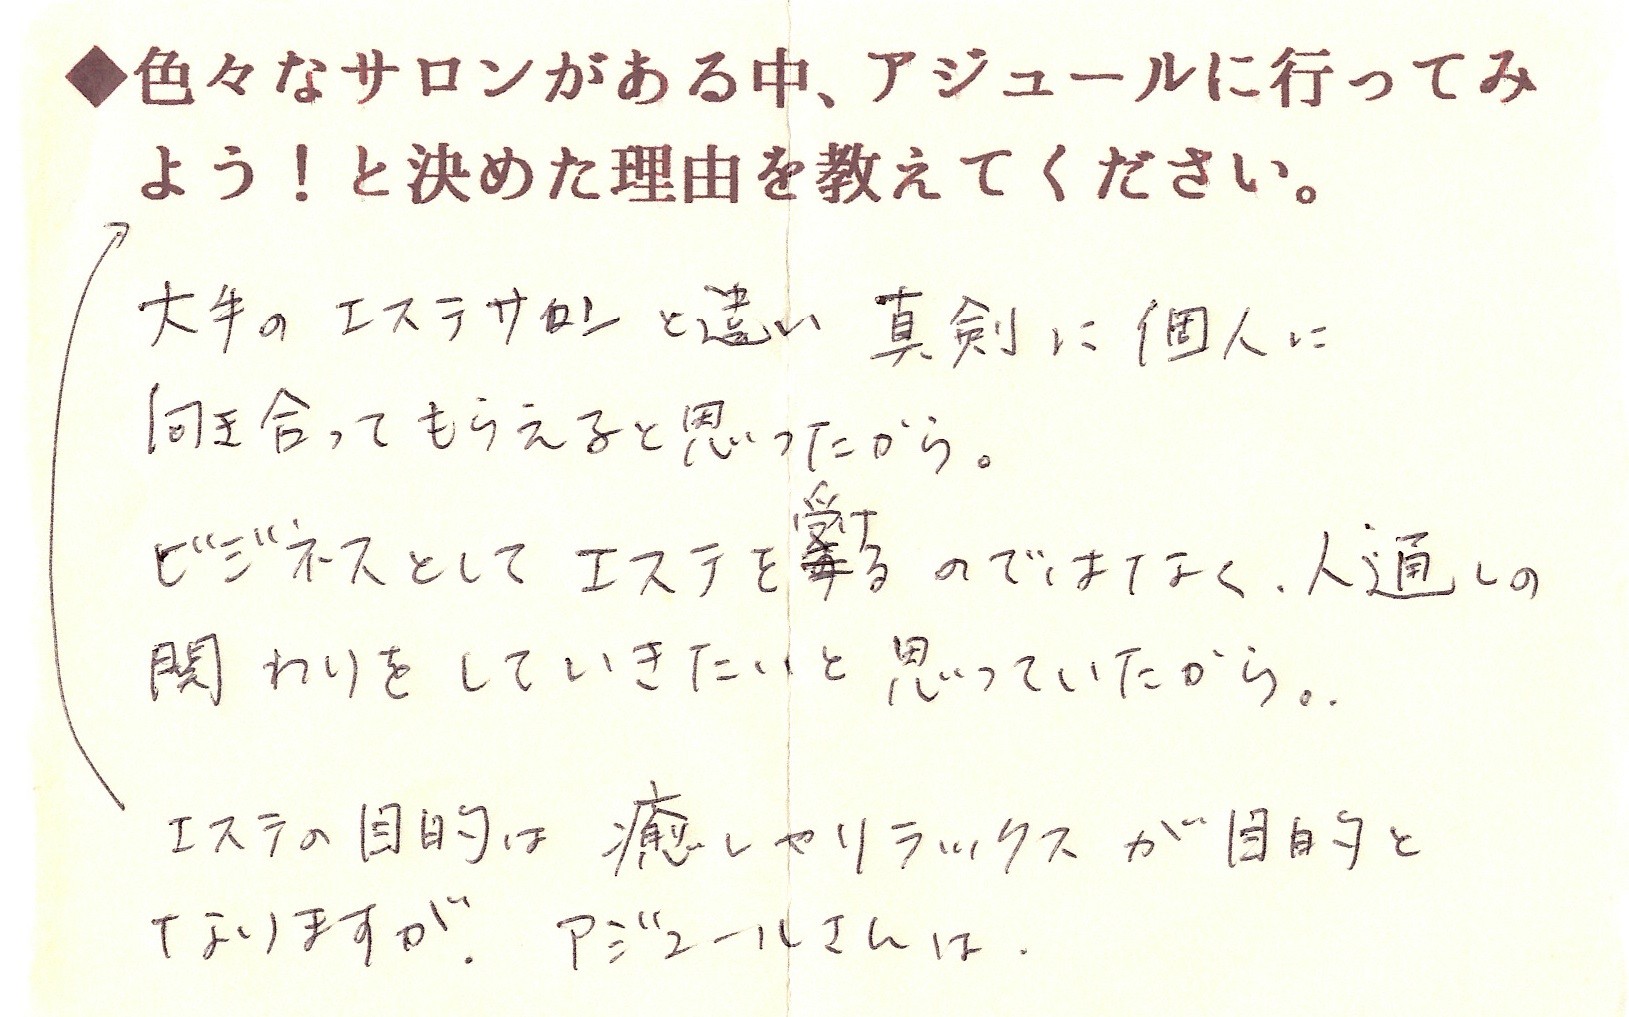 ◆色々なサロンがある中、アジュールに行ってみ
よう！と決めた理由を教えてください。
大手の エステサロン と違い 真剣に 個人に
向き合って もらえると思ったから。
ビジネスとして エステを受けるのではなく、人通しの
関わりを していきたいと 思っていたから。
エステの目的は 癒しやリラックスが目的と
なりますが、アジュールさんは、